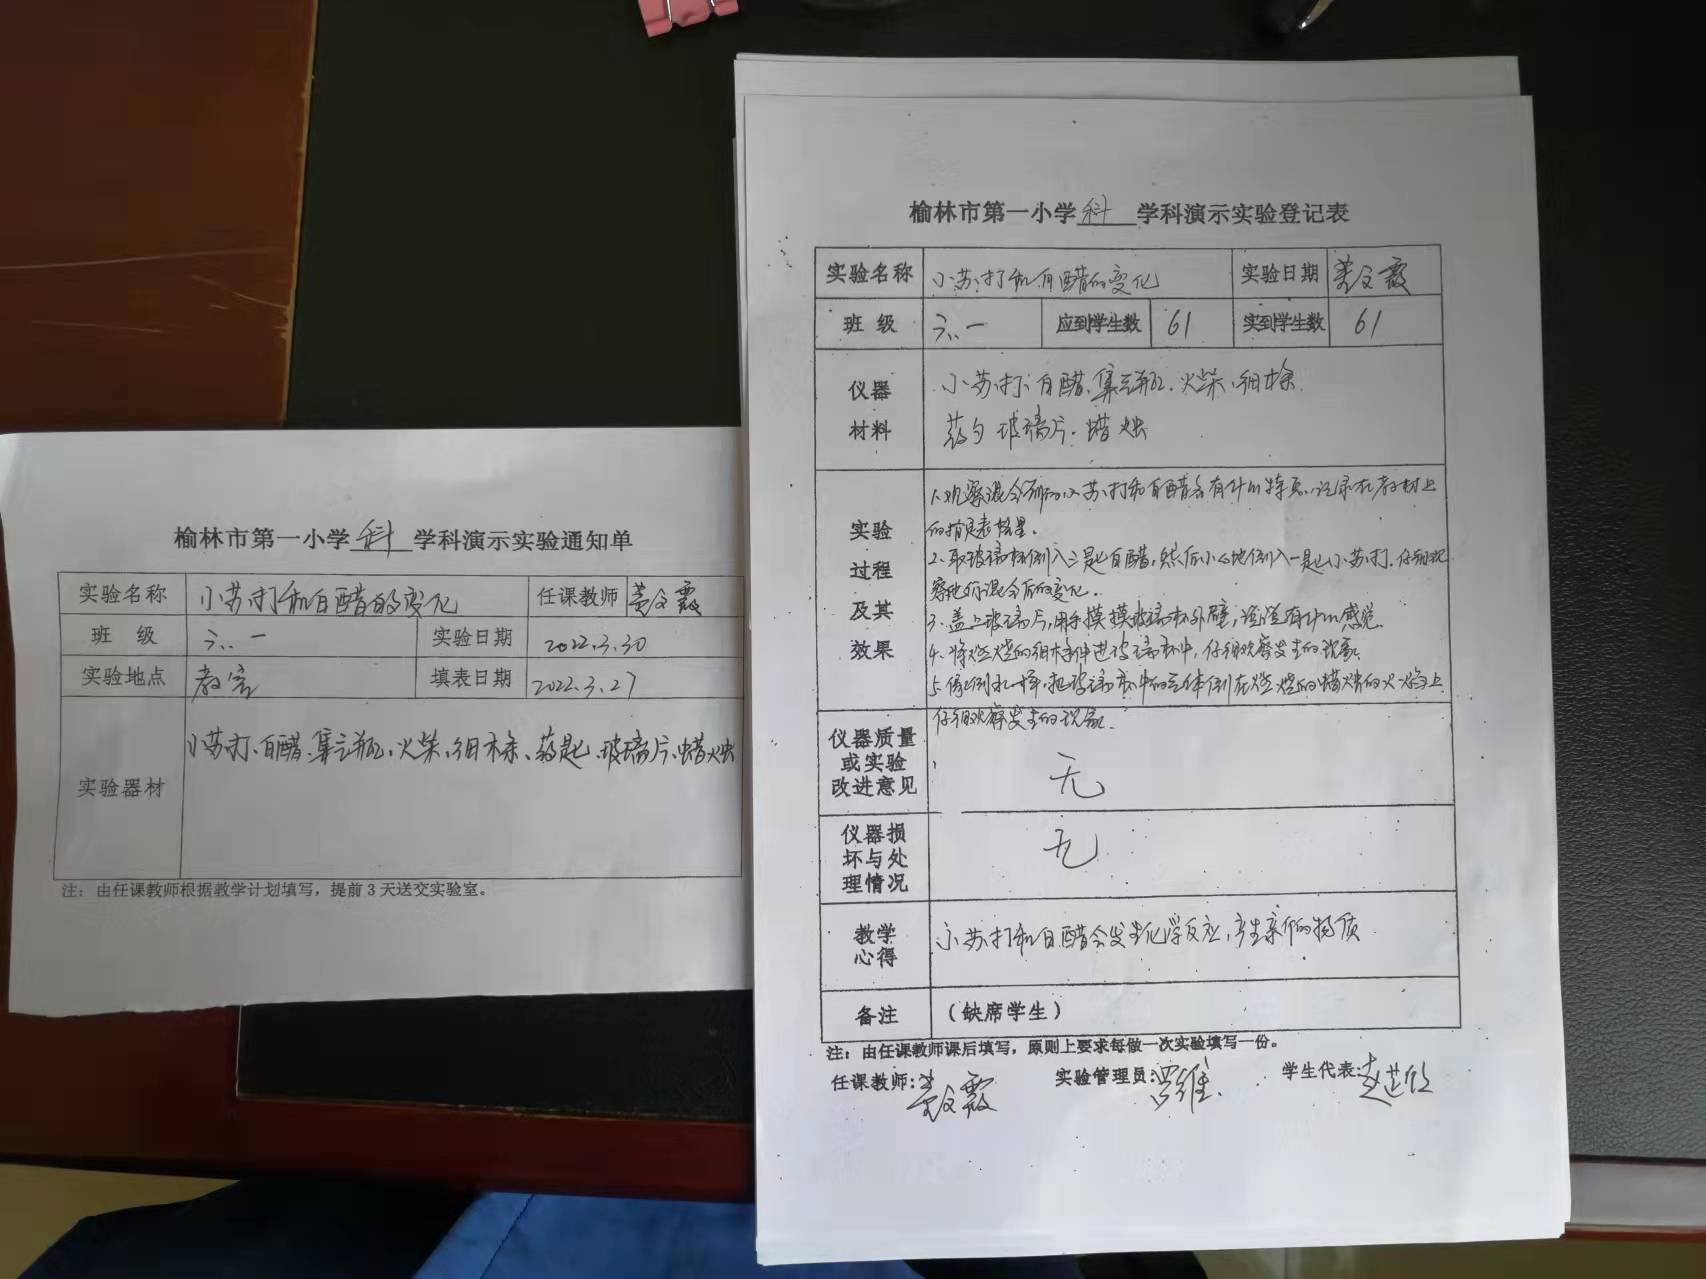 榆林市第一小学科学科演示实验通知单
实验名称 小苏打和白醋的变化 任课教师 姜文霞
班 级 六.一 实验日期 2022.3.30
实验地点 教室 填表日期 2022.3.27
实验器材 小苏打、白醋、集气瓶、火柴、细木条、药匙、玻璃片、蜡烛
注：由任课教师根据教学计划填写，提前3天送交实验室。
榆林市第一小学科学科演示实验登记表
实验名称 小苏打和白醋的变化 实验日期 姜文霞
班 级 六.一 应到学生数 61 实到学生数 61
仪器材料 小苏打、白醋、集气瓶、火柴、细木条
药勺 玻璃片、蜡烛
实验过程及其效果
1、观察混合前的小苏打和白醋各有什么特点，记录在教材上
的
2、取玻璃杯倒入三匙白醋，然后小心地倒入一匙小苏打，仔细观
察它们混合后的变化。
3、盖上玻璃片，用手摸摸玻璃杯外壁，说说有什么感觉。
4、将燃烧的细木条伸进玻璃杯中，仔细观察发生的现象。
5、像倒水一样，把玻璃杯中的气体倒在燃烧的蜡烛的火焰上
仔细观察发生的现象。
仪器质量或实验改进意见 无
仪器损坏与处理情况 无
教学心得 小苏打和白醋会发生化学反应，产生新的物质
备注 （缺席学生）
注：由任课教师课后填写，原则上要求每做一次实验填写一份。
任课教师：姜文霞 实验管理员：罗维 学生代表：赵芷欣